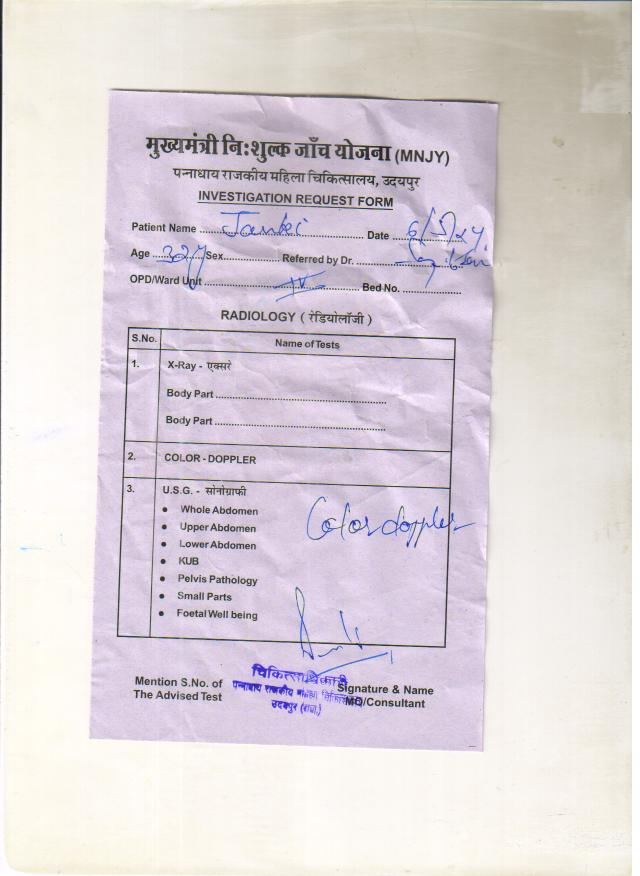 मुख्यमंत्री निःशुल्क जाँच योजना (MNJY)
पन्नाधाय राजकीय महिला चिकित्सालय, उदयपुर
INVESTIGATION REQUEST FORM
Patient Name Janki Date 6/5/24
Age 32y Sex Referred by Dr.
OPD/Ward Unit IV Bed No.
RADIOLOGY ( रेडियोलॉजी )
S.No. Name of Tests
1. X-Ray - एक्सरे
Body Part
Body Part
2. COLOR - DOPPLER
3. U.S.G. - सोनोग्राफी
• Whole Abdomen
Color doppler
• Upper Abdomen
• Lower Abdomen
• KUB
• Pelvis Pathology
• Small Parts
• Foetal Well being
चिकित्साधिकारी
पन्नाधाय राजकीय महिला
उदयपुर (राज.)
Mention S.No. of Signature & Name
The Advised Test MO/Consultant